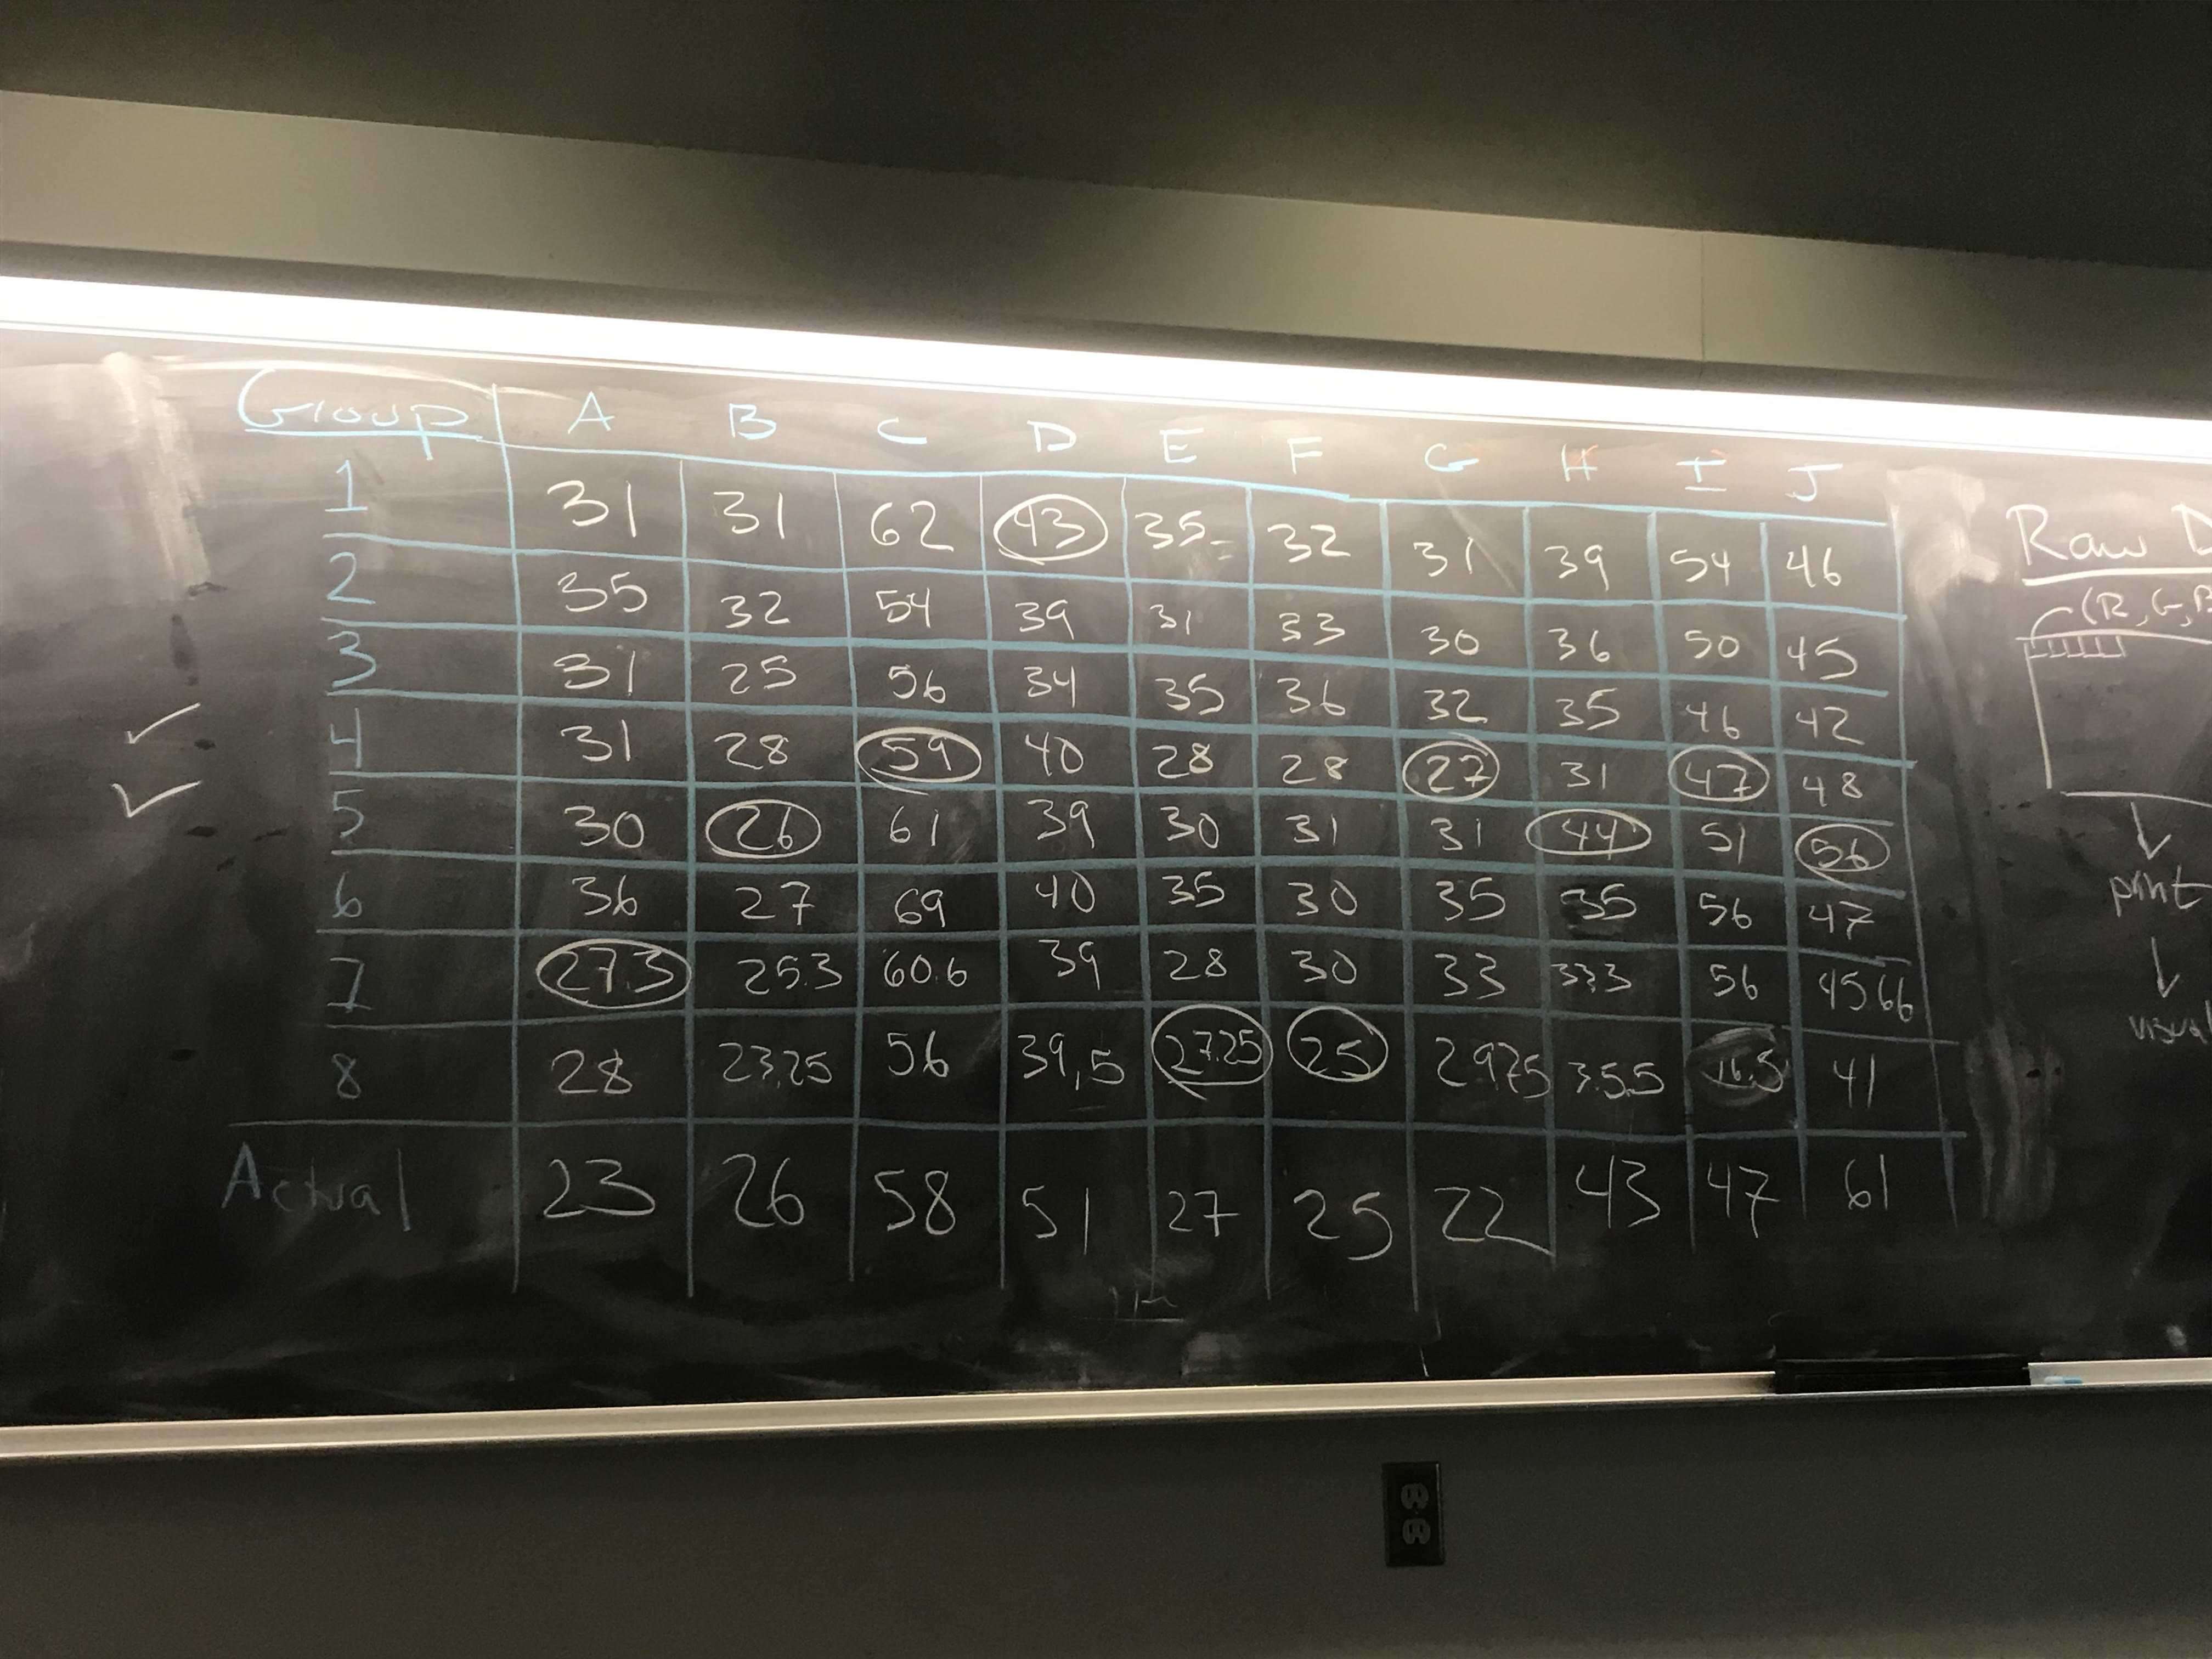 Group A B C D E F G H I J
1 31 31 62 43 35 32 31 39 54 46
2 35 32 54 39 31 33 30 36 50 45
3 31 25 56 34 35 36 32 35 46 42
4 31 28 59 40 28 28 27 31 47 48
5 30 26 61 39 30 31 31 44 51 56
6 36 27 69 40 35 30 35 35 56 47
7 27.3 25.3 60.6 39 28 30 33 33.3 56 45.66
8 28 23.25 56 39,5 27.25 25 29.75 35.5 41
Actual 23 26 58 51 27 25 22 43 47 61
Raw D
(R, G, B
print
visual